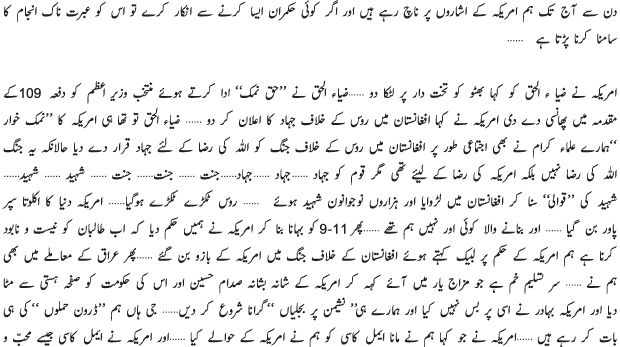 دن سے آج تک ہم امریکہ کے اشاروں پر ناچ رہے ہیں اور اگر کوئی حکمران ایسا کرنے سے انکار کرے تو اس کو عبرت ناک انجام کا
سامنا کرنا پڑتا ہے ......
امریکہ نے ضیاء الحق کو کہا بھٹو کو تختہ دار پر لٹکا دو ......ضیاء الحق نے ’’حق نمک‘‘ ادا کرتے ہوئے منتخب وزیر اعظم کو دفعہ 109کے
مقدمہ میں پھانسی دے دی امریکہ نے کہا افغانستان میں روس کے خلاف جہاد کا اعلان کر دو ...... ضیاء الحق تو تھا ہی امریکہ کا ’’نمک خوار
‘‘ہمارے علماء کرام نے بھی اجتماعی طور پر افغانستان میں روس کے خلاف جنگ کو اللہ کی رضا کے لئے جہاد قرار دے دیا حالانکہ یہ جنگ
اللہ کی رضا نہیں بلکہ امریکہ کی رضا کے لیئے تھی مگر قوم کو جہاد ......جہاد ......جہاد......جنت ...... جنت......جنت ...... شہید ...... شہید......
شہید کی ’’قوالی‘‘ سنا کر افغانستان میں لڑوایا اور ہزاروں نوجوانون شہید ہوئے ...... روس ٹکڑے ٹکڑے ہوگیا...... امریکہ دنیا کا اکلوتا سپر
پاور بن گیا ...... اور بنانے والا کوئی اور نہیں ہم تھے ......پھر 11-9 کو بہانا بنا کر امریکہ نے ہمیں حکم دیا کہ اب طالبان کو نیست و نابود
کرنا ہے ہم امریکہ کے حکم پر لبیک کہتے ہوئے افغانستان کے خلاف جنگ میں امریکہ کے بازو بن گئے ......پھر عراق کے معاملے میں بھی
ہم نے ...... سر تسلیم خم ہے جو مزاج یار میں آئے کہہ کر امریکہ کے شانہ بشانہ صدام حسین اور اس کی حکومت کو صفحہ ہستی سے مٹا
دیا اور امریکہ بہادر نے اسی پر بس نہیں کیا اور ہمارے ہی’’ نشیمن پر بجلیاں ‘‘گرانا شروع کر دیں...... جی ہاں ہم ’’ڈرون حملوں ‘‘کی ہی
بات کر رہے ہیں ......امریکہ نے جو کہا ہم نے مانا ایمل کاسی کو ہم نے امریکہ کے حوالے کیا ......اور امریکہ نے ایمل کاسی جیسے محبّ و